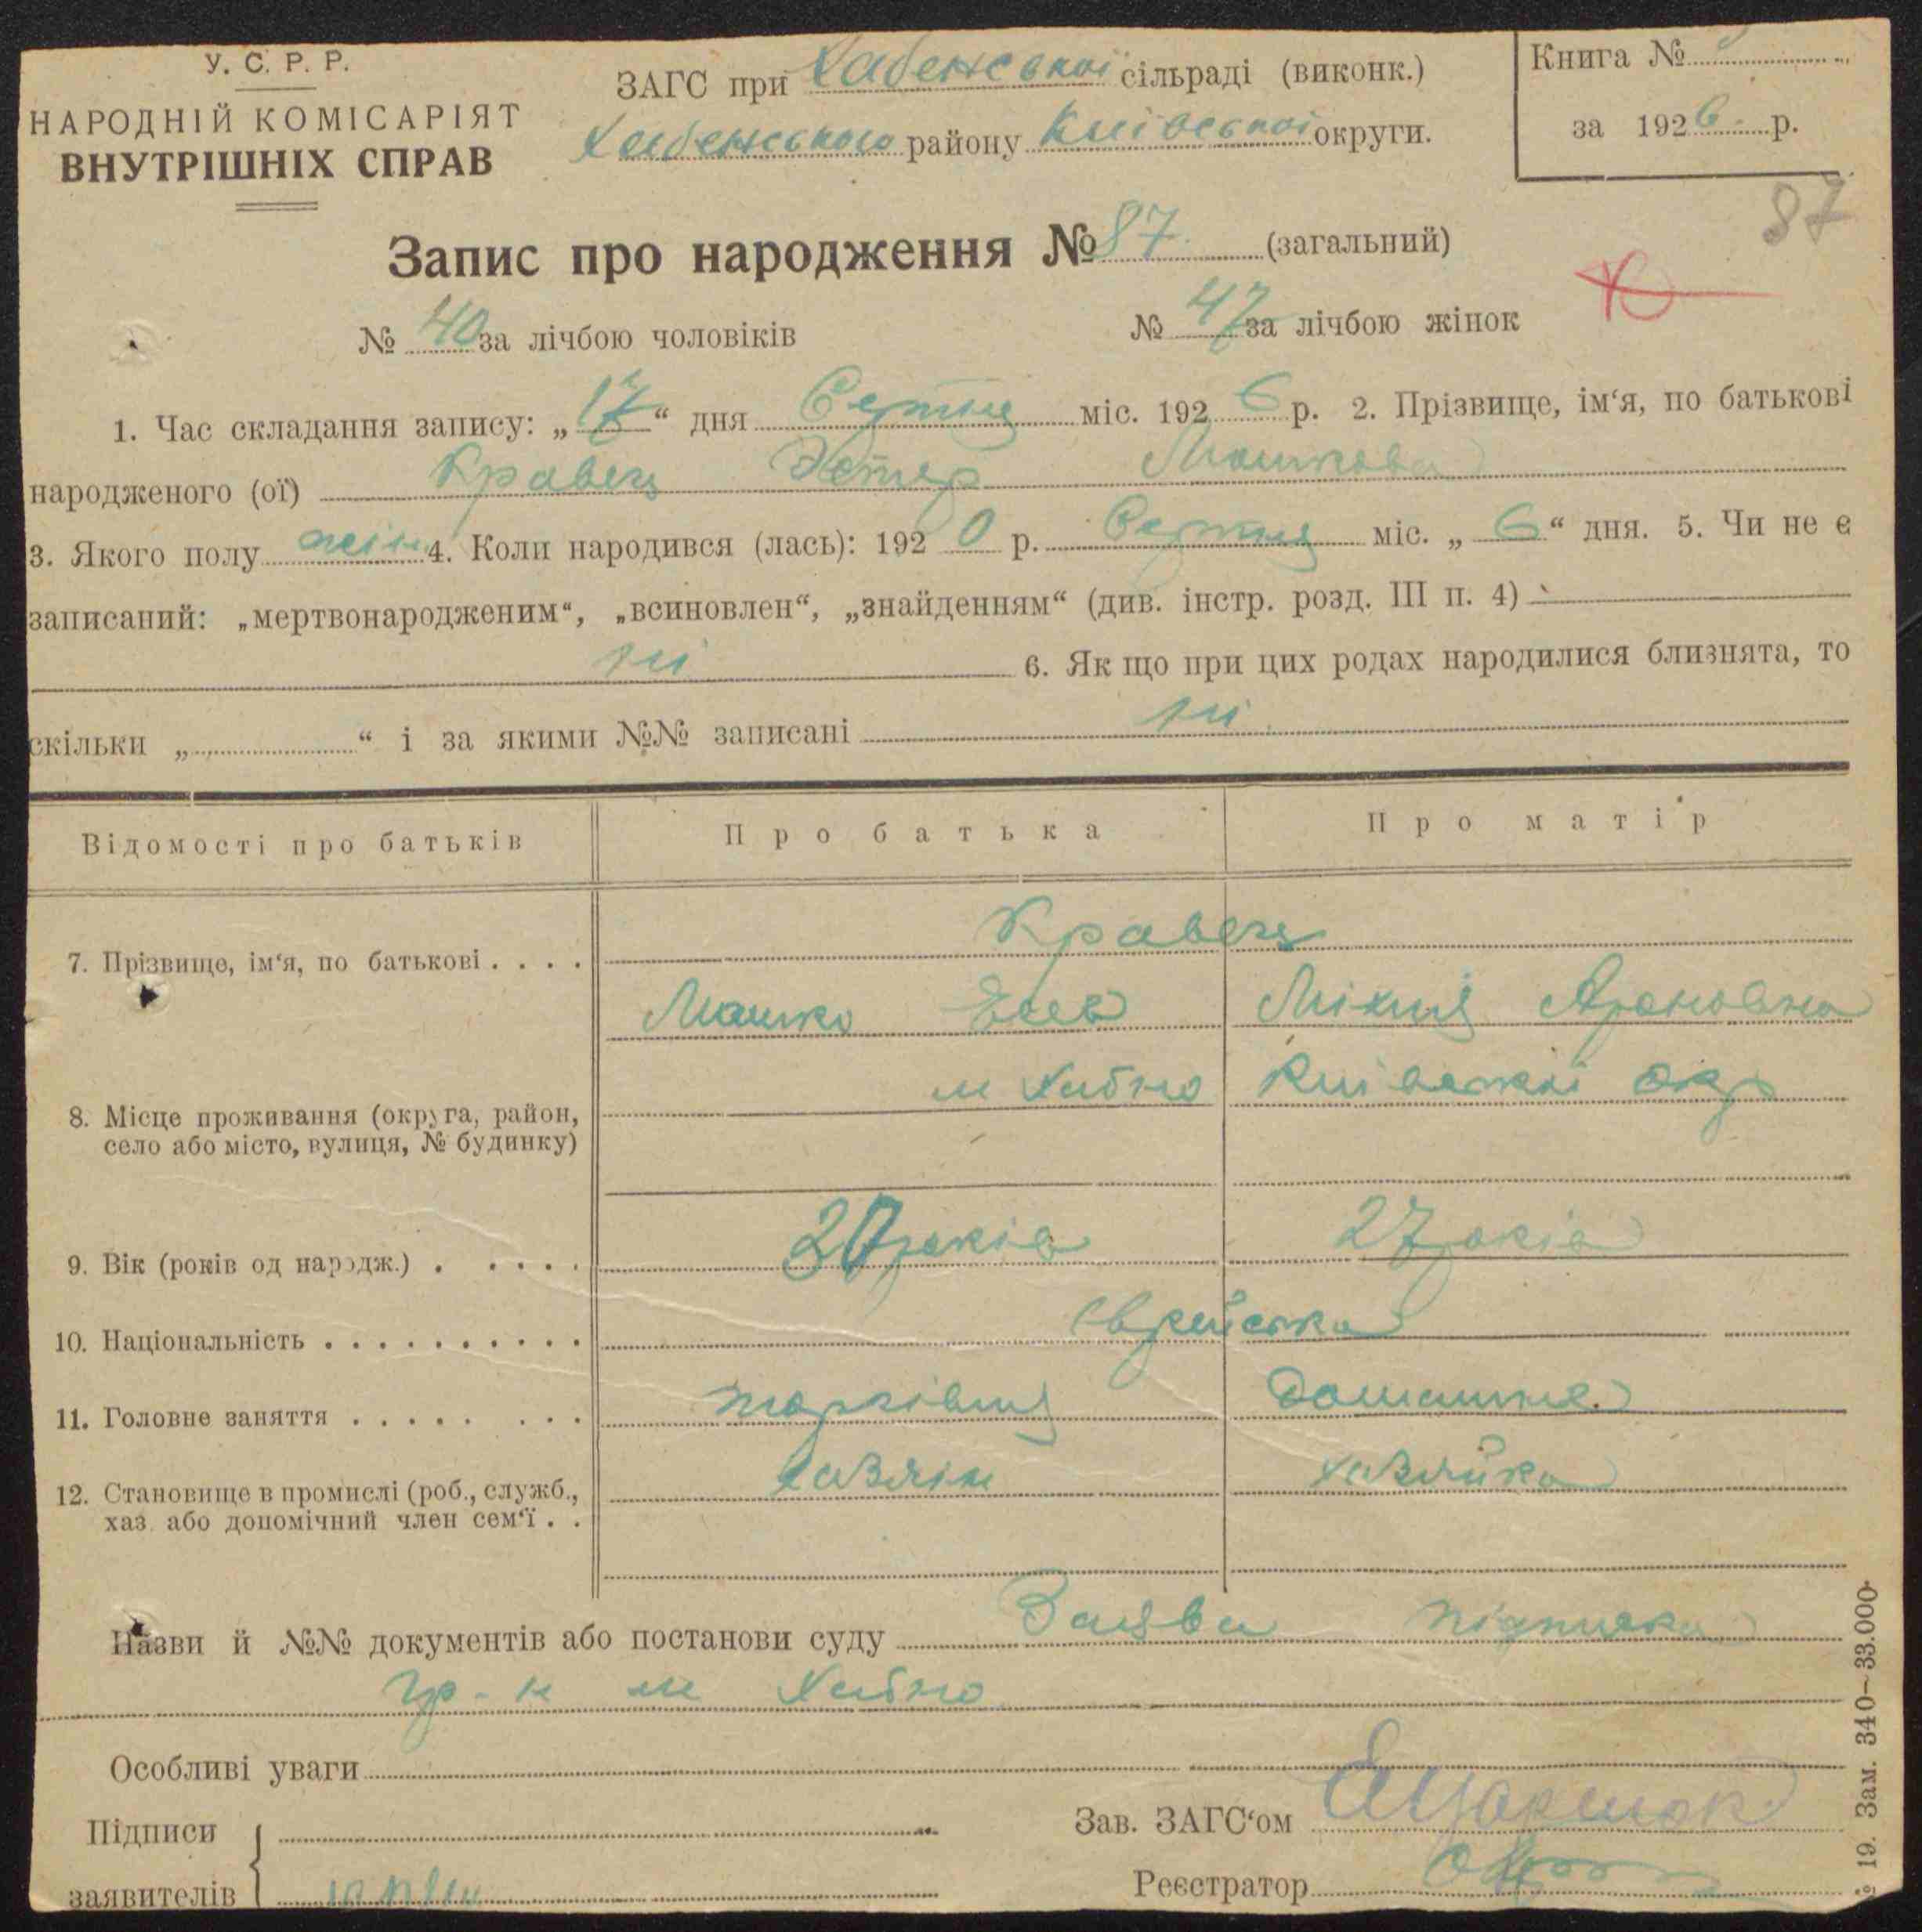 У. С. Р. Р.
НАРОДНІЙ КОМІСАРІЯТ
ВНУТРІШНІХ СПРАВ
ЗАГС при Хабенської сільраді (виконк.)
Хабенського району Київської округи.
Книга №
за 1926 р.
87
Запис про народження № 87 (загальний)
№ 40 за лічбою чоловіків № 47 за лічбою жінок
1. Час складання запису: „17“ дня Серпня міс. 1926 р. 2. Прізвище, ім‘я, по батькові
народженого (ої) Кравець Эстер Мошкова
3. Якого полу жін 4. Коли народився (лась): 1920 р. Серпня міс. „6“ дня. 5. Чи не є
записаний: „мертвонародженим“, „всиновлен“, „знайденням“ (див. інстр. розд. III п. 4)
ні 6. Як що при цих родах народилися близнята, то
скільки „ “ і за якими №№ записані ні
Відомості про батьків Про батька Про матір
7. Прізвище, ім‘я, по батькові . . . . Кравець
Мошко Арановна
8. Місце проживання (округа, район,
село або місто, вулиця, № будинку) м Хабно Київської окр
9. Вік (років од народж.) . . . . . років 27 років
10. Національність . . . . . . . . . . Єврейська
11. Головне заняття . . . . . . . . торгівця домашнє
12. Становище в промислі (роб., служб.,
хаз. або допомічний член сем‘ї . . хазяїн хазяйка
Назви й №№ документів або постанови суду Заява підписка
гр-н м Хабно
Особливі уваги
Підписи
заявителів
Зав. ЗАГС‘ом
Реєстратор
19. Зам. 340–33.000.